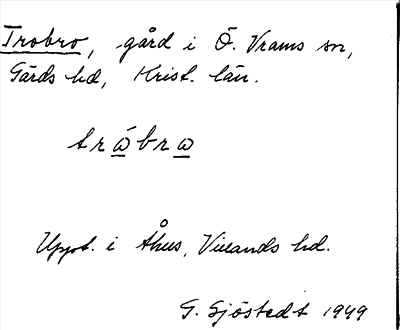 Trobro, gård i Ö. Vrams sn,
Gärds hd, Krist. län.
trώbrω
Uppt. i Åhus, Villands hd.
G. Sjöstedt 1949